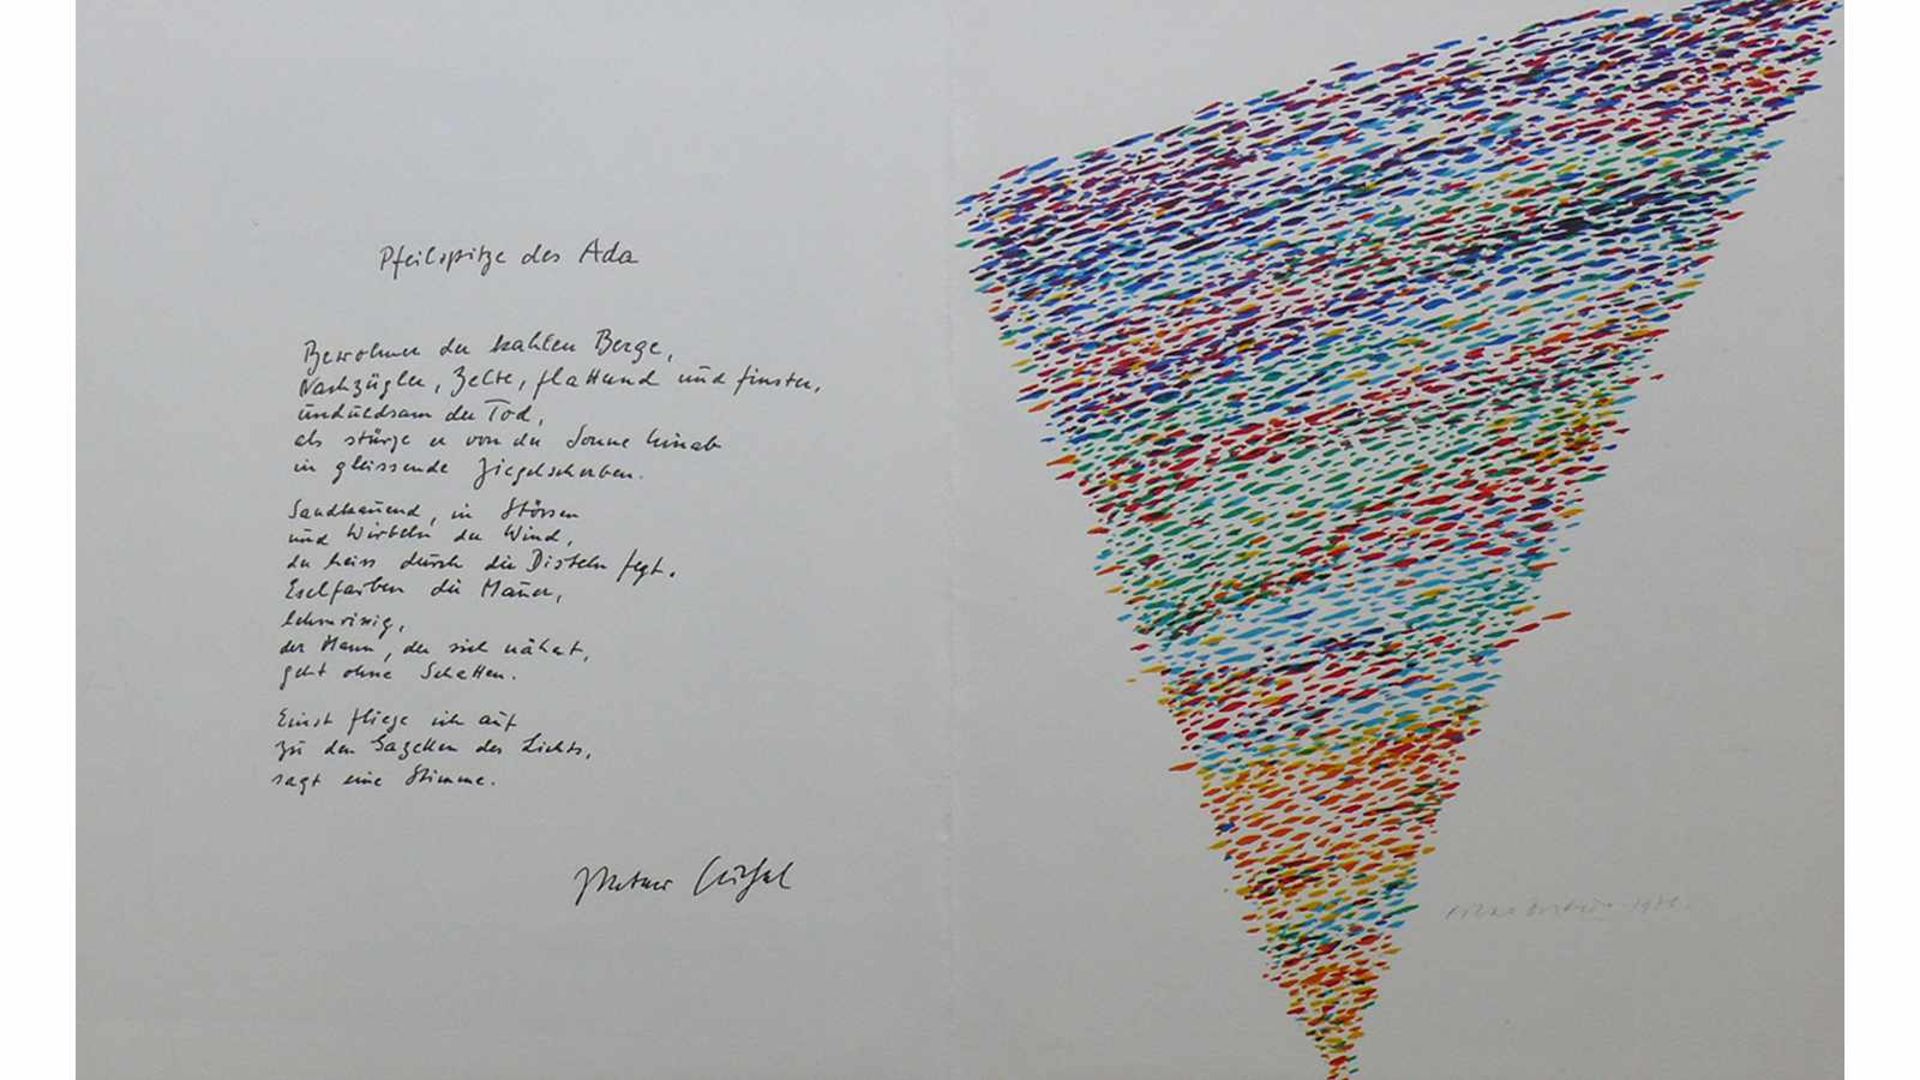 Pfeilspitze des Ada
Bewohner der kahlen Berge,
Nachzügler, Zelte, flatternd und finster,
unduldsam der Tod,
als stürze er von der Sonne hinab
in gleissende Ziegelscherben.
Sandkauend, in Stössen
und Wirbeln der Wind,
der heiss durch die Disteln fegt.
Eselfarben die Mauer,
lehmrissig,
der Mann, der sich nähert,
geht ohne Schatten.
Einst fliege ich auf
zu den Gazellen des Lichts,
sagt eine Stimme.